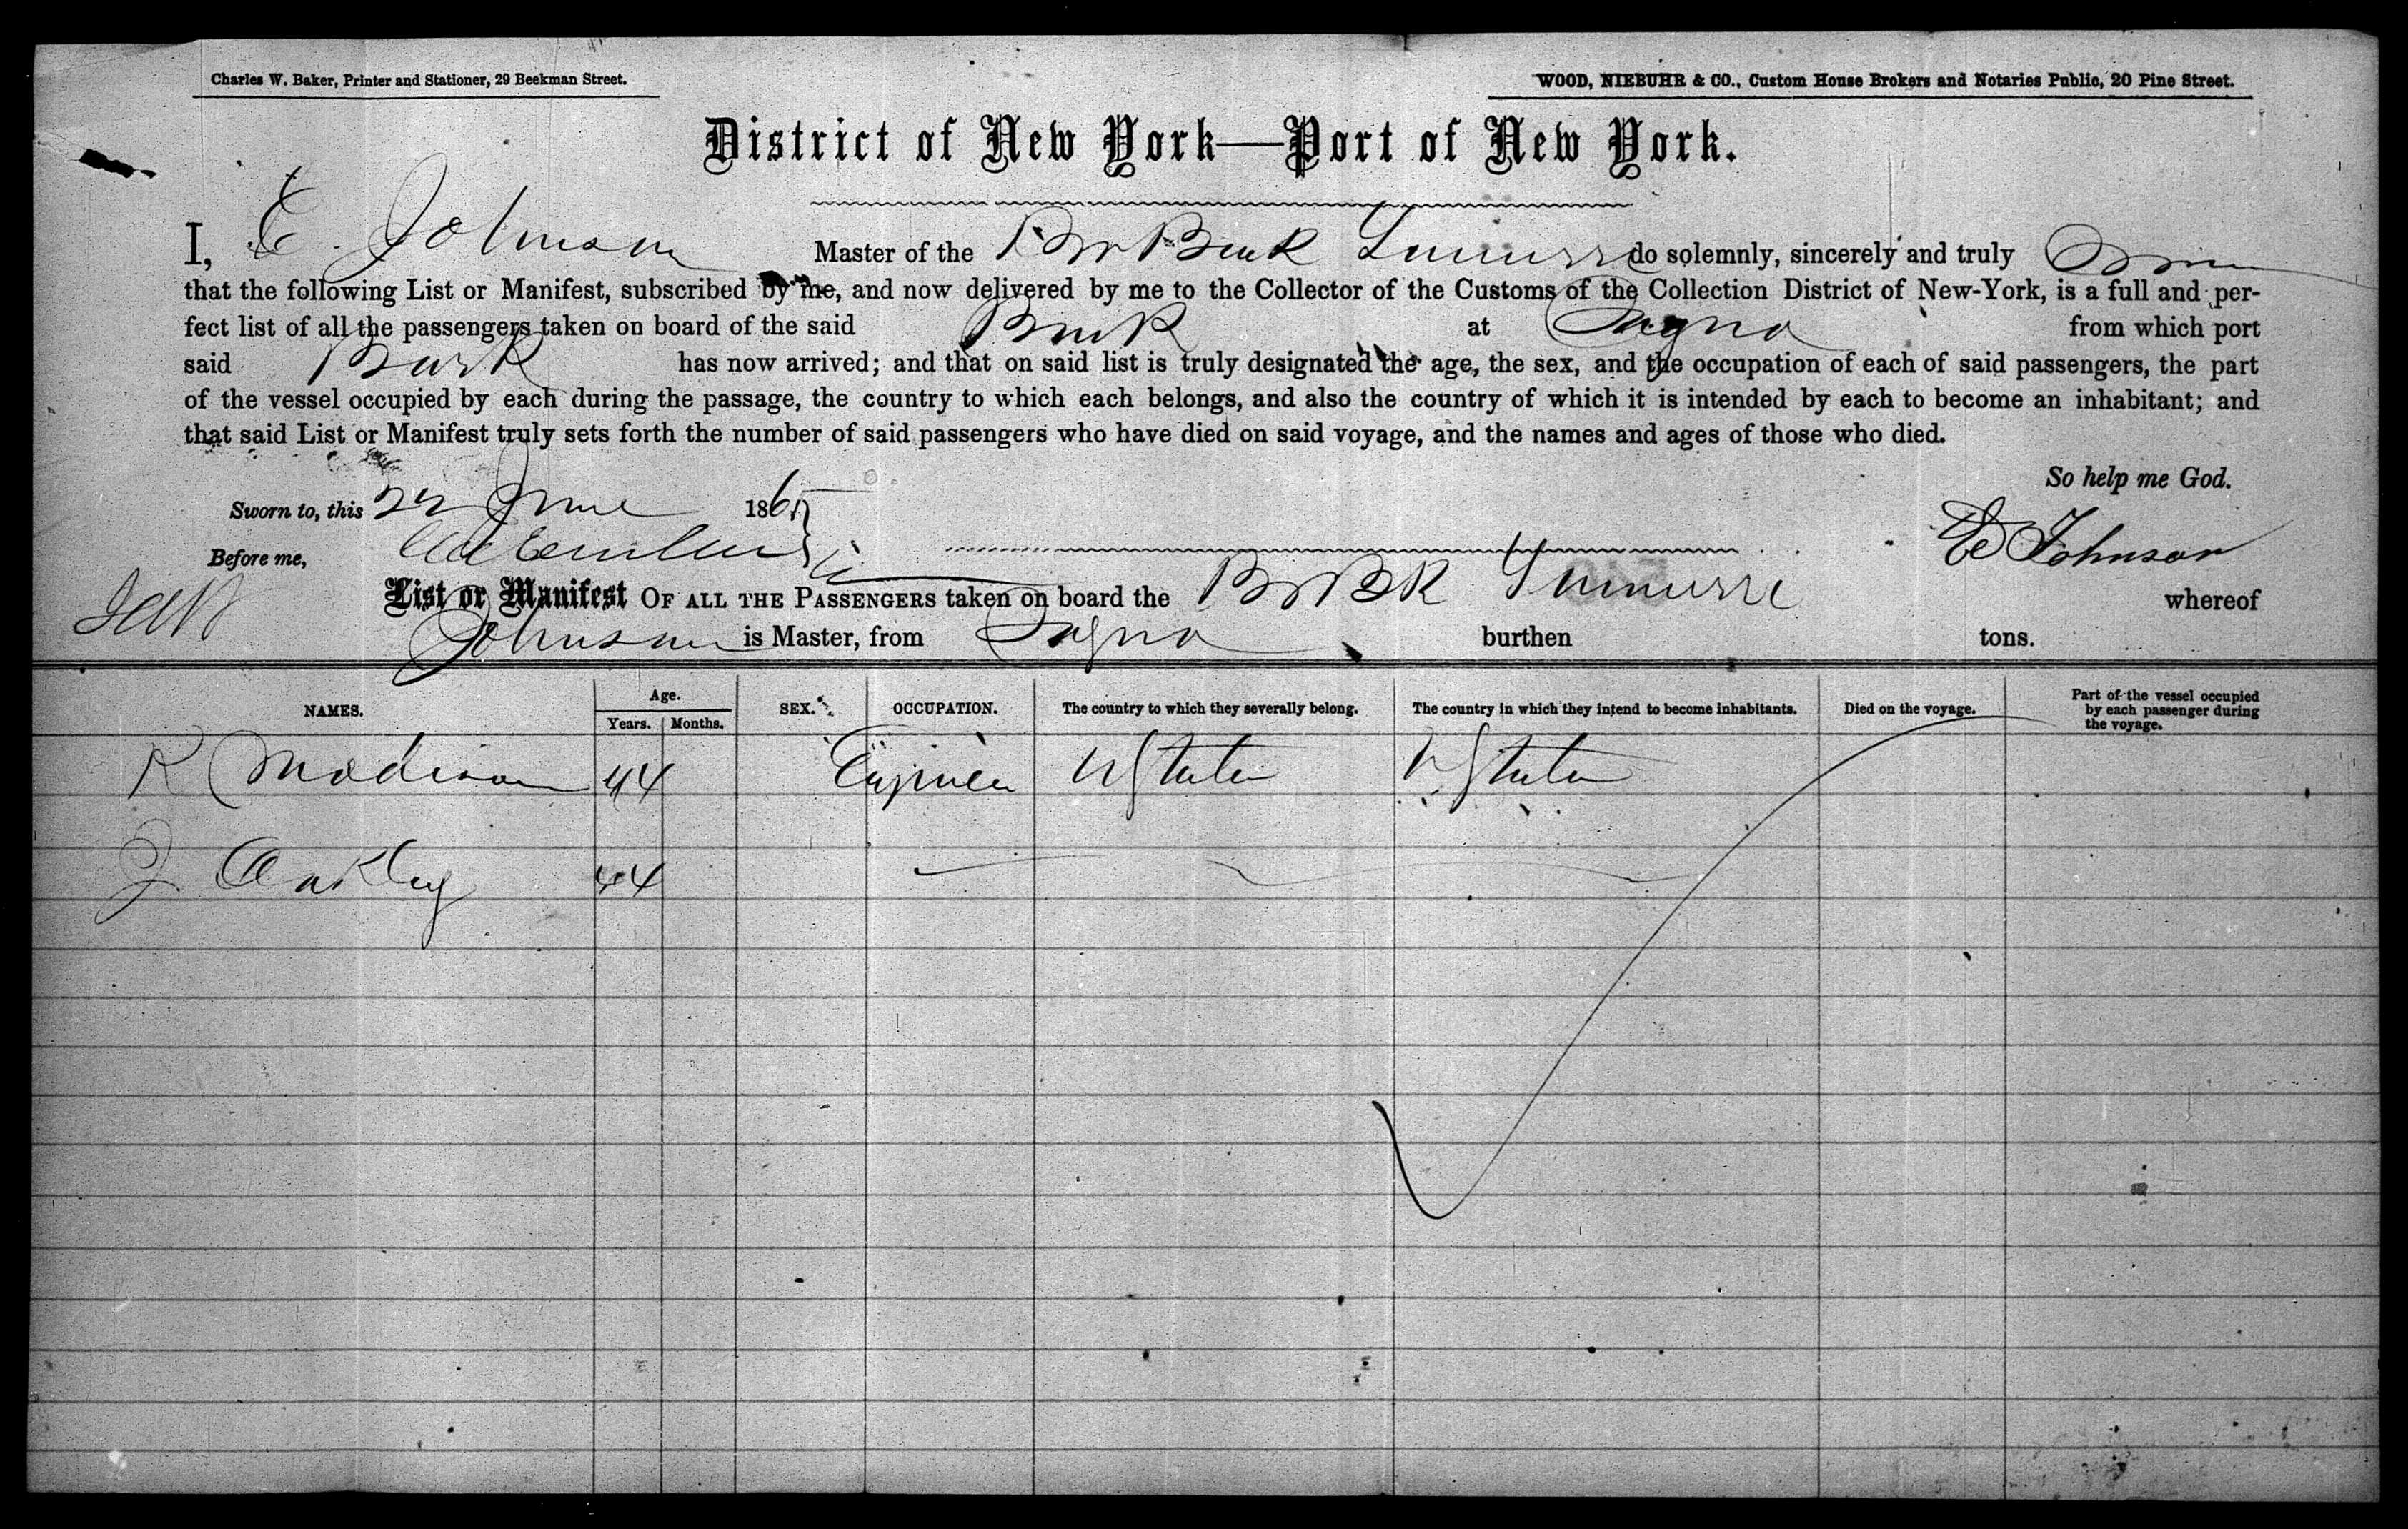 Charles W. Baker, Printer and Stationer, 29 Beekman Street.
WOOD, NIEBUHR & CO., Custom House Brokers and Notaries Public, 20 Pine Street.
District of New York—Port of New York.
I, E. Johnson Master of the Br Bark do solemnly, sincerely and truly
that the following List or Manifest, subscribed by me, and now delivered by me to the Collector of the Customs of the Collection District of New-York, is a full and per-
fect list of all the passengers taken on board of the said Bark at Sagua from which port
said Bark has now arrived; and that on said list is truly designated the age, the sex, and the occupation of each of said passengers, the part
of the vessel occupied by each during the passage, the country to which each belongs, and also the country of which it is intended by each to become an inhabitant; and
that said List or Manifest truly sets forth the number of said passengers who have died on said voyage, and the names and ages of those who died.
So help me God.
Sworn to, this 22 June 1865
Before me,
Ed Johnson
List or Manifest OF ALL THE PASSENGERS taken on board the Br Bk whereof
Johnson is Master, from Sagua burthen tons.
NAMES. Age. Years. Months. SEX. OCCUPATION. The country to which they severally belong. The country in which they intend to become inhabitants. Died on the voyage. Part of the vessel occupied by each passenger during the voyage.
R Madison 44 Engineer U States U States
J. Oakley 44